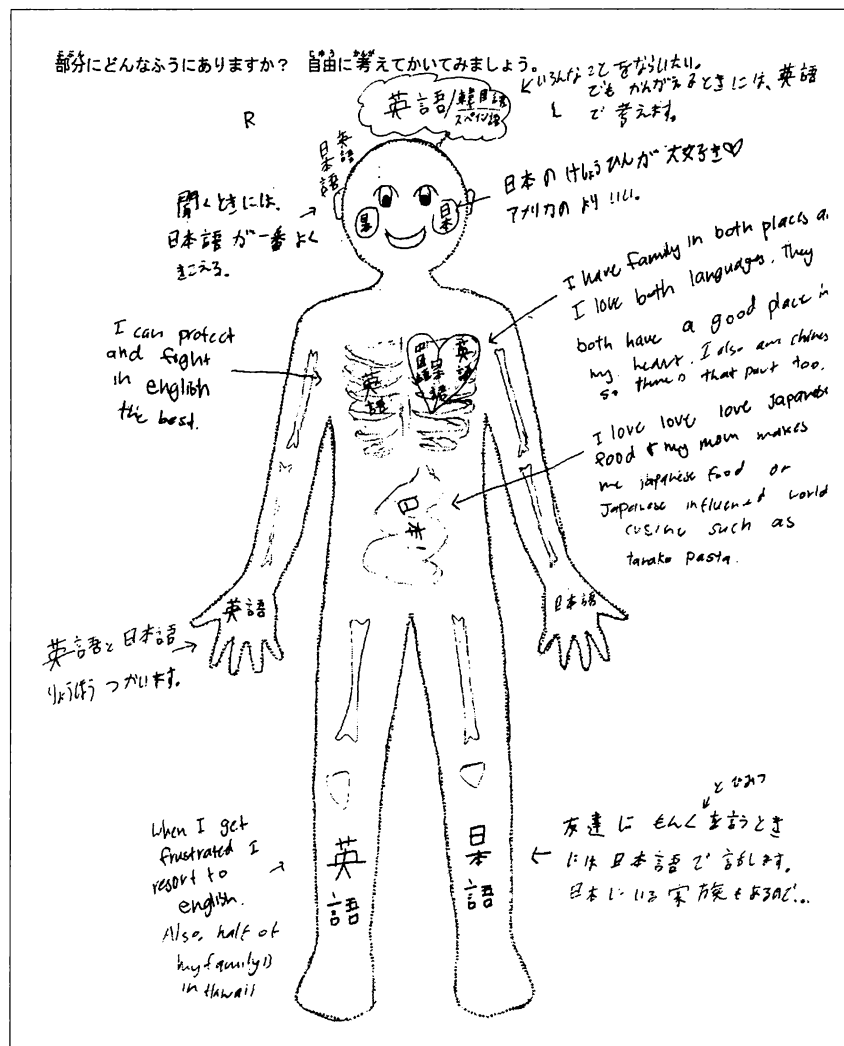 部分にどんなふうにありますか？ 自由に考えてかいてみましょう。
R
L
英語/韓国語
スペイン語
いろんなことをならいたい。
でもかんがえるときには、英語
で考えます。
日本語
英語
聞くときには、
日本語が一番よく
きこえる。
日本
日本のけしょうひんが大好き♡
アメリカのよりいい。
I have family in both places a
I love both languages. They
both have a good place in
my heart. I also am chines
so there is that part too.
I can protect
and fight
in english
the best.
英語
中国語
日本語
英語
I love love love Japanese
food & my mom makes
me japanese food or
Japanese influenced world
cusine such as
tarako pasta.
日本
英語
日本語
英語と日本語
りょうほうつかいます。
When I get
frustrated I
resort to
english.
Also, half of
my family is
in Hawaii
英語
日本語
とひみつ
友達にもんくを言うとき
には日本語で話します。
日本にいる家族もあるので...